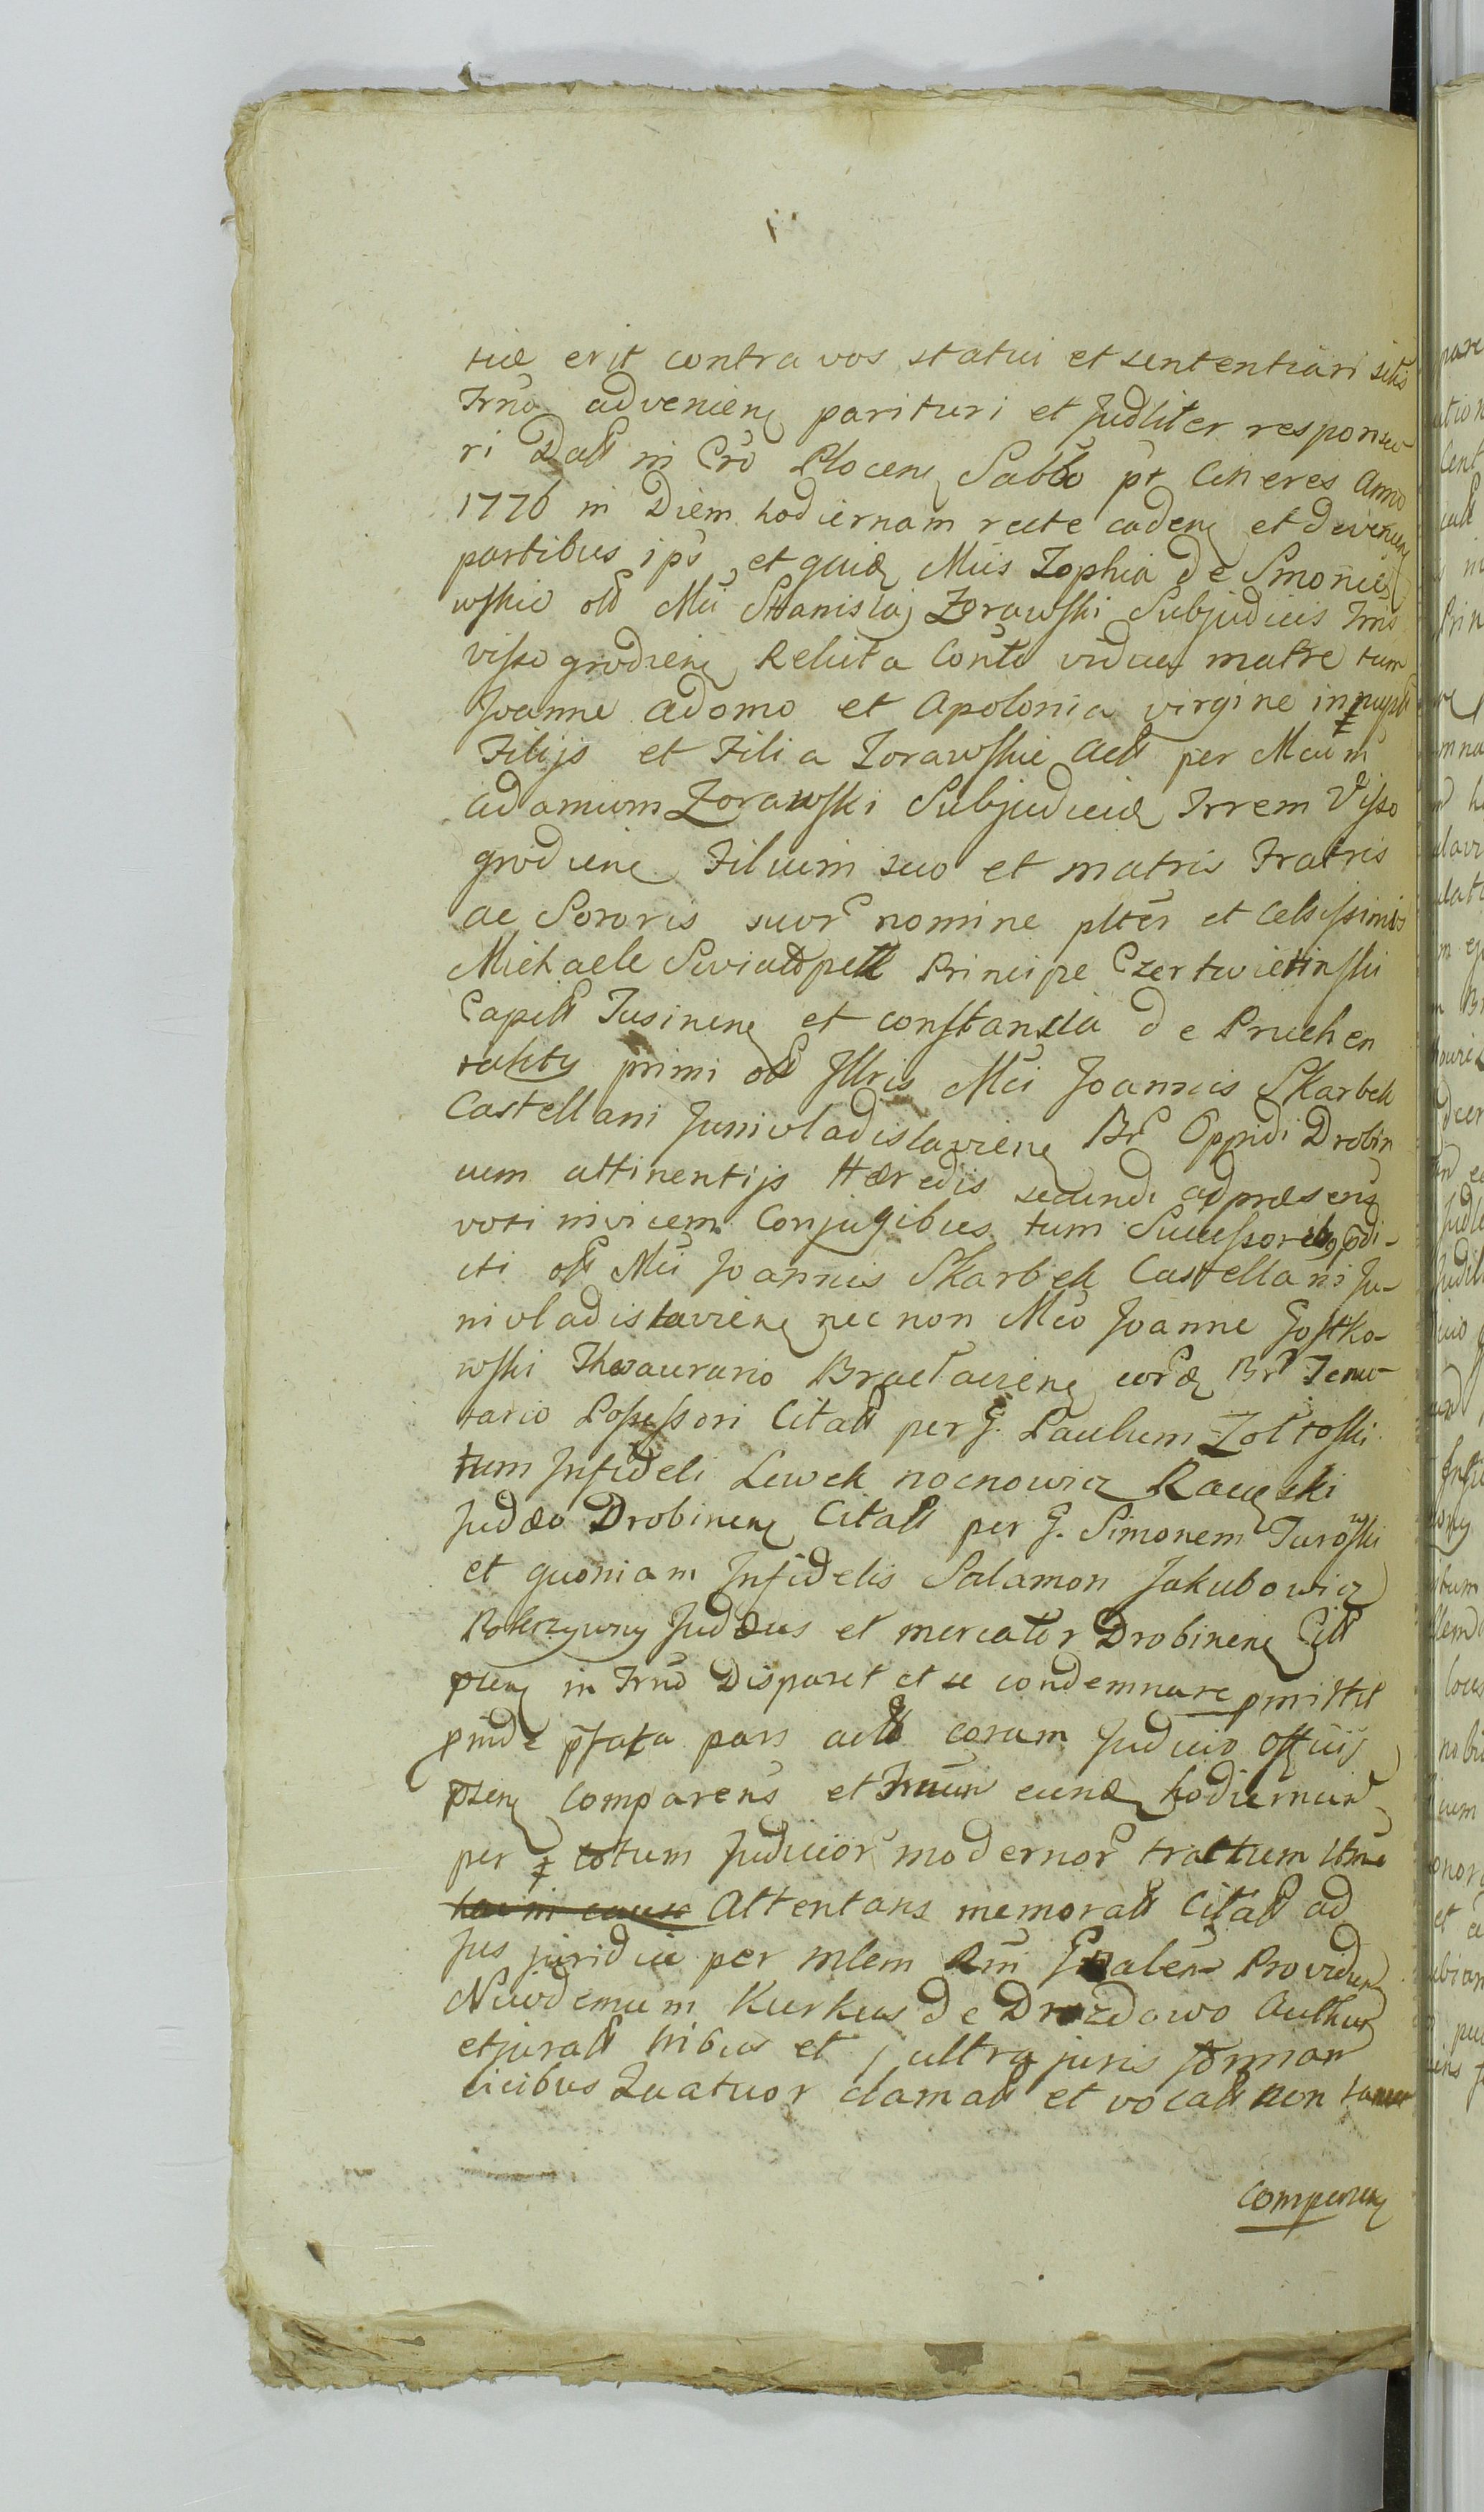 tiæ erit contra vos statui et sententiari sitis
Trno advenien parituri et Judliter responsu-
ri Datt in Cro Plocen Sabbo pt Cineres Anno
1776 in Diem hodiernam recte caden et devenien
partibus ips et quid Mcis Zophia de Smonie
wskie olb Mci Stanislaj Zorawski Subjudicis Trris
vissogrodien Relicta Conte vidua matre tum
Joanne Adamo et Apolonia virgine innupt
Filijs et Filia Zorawskie Actt per Mcum
Adamum Zorawski Subjudicid Trrem Visso
grodien Filium suo et matris Fratris
ac Sororis suor nomine plter et Celsissimis
Michaele Swiatopelk Principe Czertwietinski
Capitt Jusinen et constancia de Pruchen
tahty primi olb Illris Mci Joannis Skarbek
Castellani Junivladislavien Br Oppidi Drobin
cum attinentijs Hæredis secundi ad præsens
voti invicem Conjugibus tum Successoribs pdi-
cti olb Mci Joannis Skarbek Castellani Ju-
nivladislavien nec non Mco Joanne Gostko-
wski Thesaurario Braclavien eord Br Tenu-
tario Possessori Citatt per G. Paulum Zoltoski
tum Infideli Lewek nocnowicz Racqski
Judæo Drobinen Citatt per G. Simonem Turoski
et quoniam Infidelis Salamon Jakubowicz
Pokrzywny Judæus et mercator Drobinen Citt
pten in Trno Disparet et se condemnare pmittit
pinde pfata pars actt coram Judicio Offciij
psen Comparens et Trnum eund hodiernum
per totum Judicior modernor tractum
hac in causa Attentans memoratt Citatt ad
Jus juridice per mlem Rni Gnalem Providum
Nicodemum Kurkus de Drozdowo Authen
et juratt tribus et ultra juris formam
vicibus Quatuor clamatt et vocatt non tamen
comparen